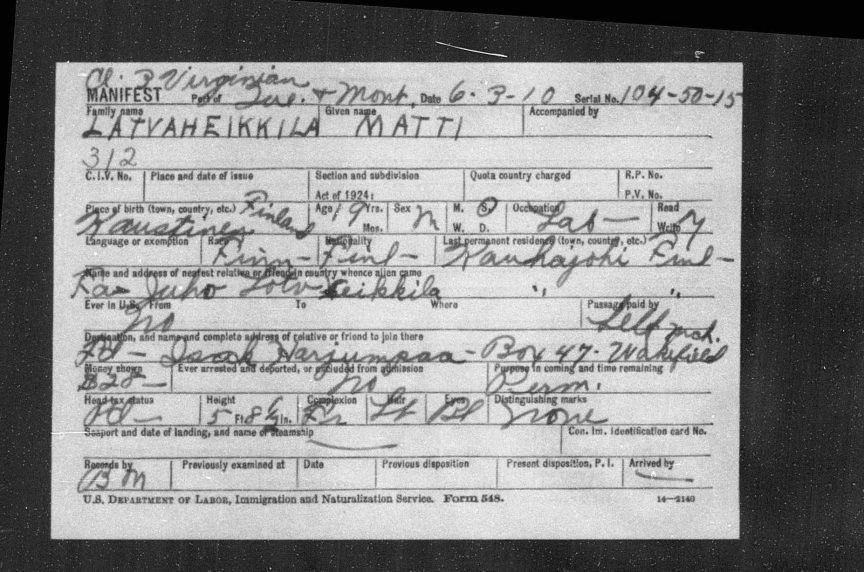 Cl. 3 Virginian
MANIFEST Port of Que. + Mont. Date 6-3-10 Serial No. 104-50-15
Family name Given name Accompanied by
LATVAHEIKKILA MATTI
312
C.I.V. No. Place and date of issue Section and subdivision Quota country charged R.P. No.
Act of 1924: P.V. No.
Place of birth (town, country, etc.) Finland Age 19 Yrs. Sex M M. S Occupation Lab— Read
Kaustinen Mos. W. D. Write Y
Language or exemption Race Finn— Nationality Finl— Last permanent residence (town, country, etc.) Kauhajoki Finl—
Name and address of nearest relative or friend in country whence alien came
Fa— Juho " "
Ever in U.S. From To Where Passage paid by
No Self
Destination, and name and complete address of relative or friend to join there
Isaak Harjumpaa - Box 47. Wakefield
Money shown Ever arrested and deported, or excluded from admission Purpose in coming and time remaining
$28— No Perm.
Head tax status Height Complexion Hair Eyes Distinguishing marks
Pd— 5 Ft. 8 ½ In. Fr Lt Bl None
Seaport and date of landing, and name of steamship Con. Im. Identification card No.
Records by Previously examined at Date Previous disposition Present disposition, P.I. Arrived by
BM
U.S. DEPARTMENT OF LABOR, Immigration and Naturalization Service. Form 548. 14—2140